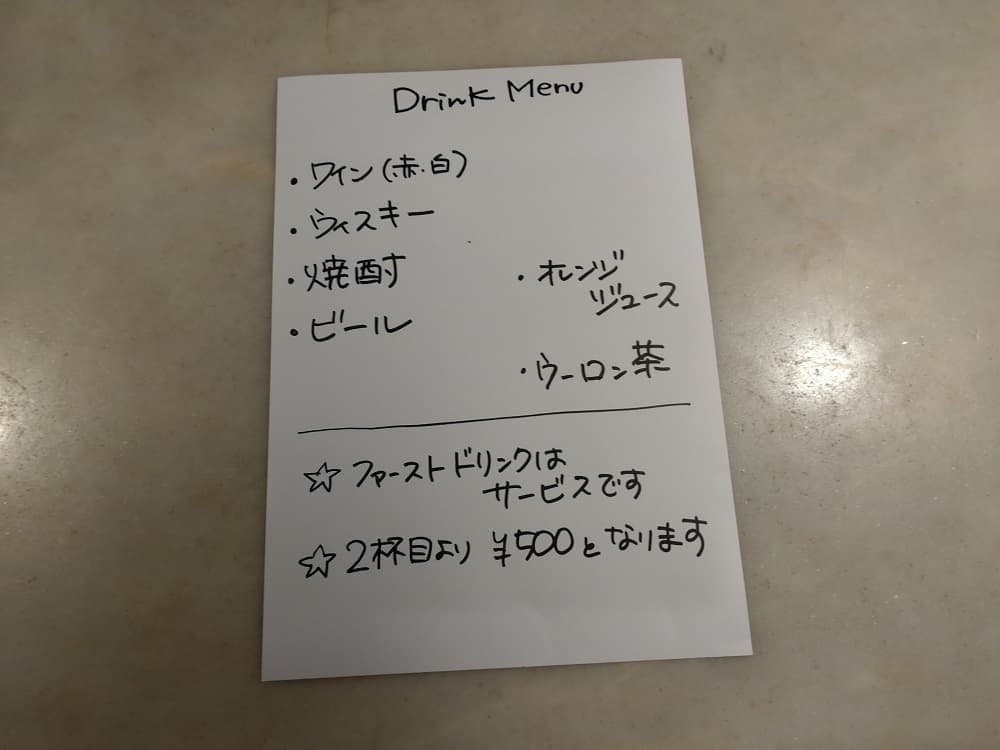 Drink Menu
・ワイン(赤・白)
・ウィスキー
・焼酎
・ビール
・オレンジ
ジュース
・ウーロン茶
☆ファーストドリンクは
サービスです
☆2杯目より ¥500となります